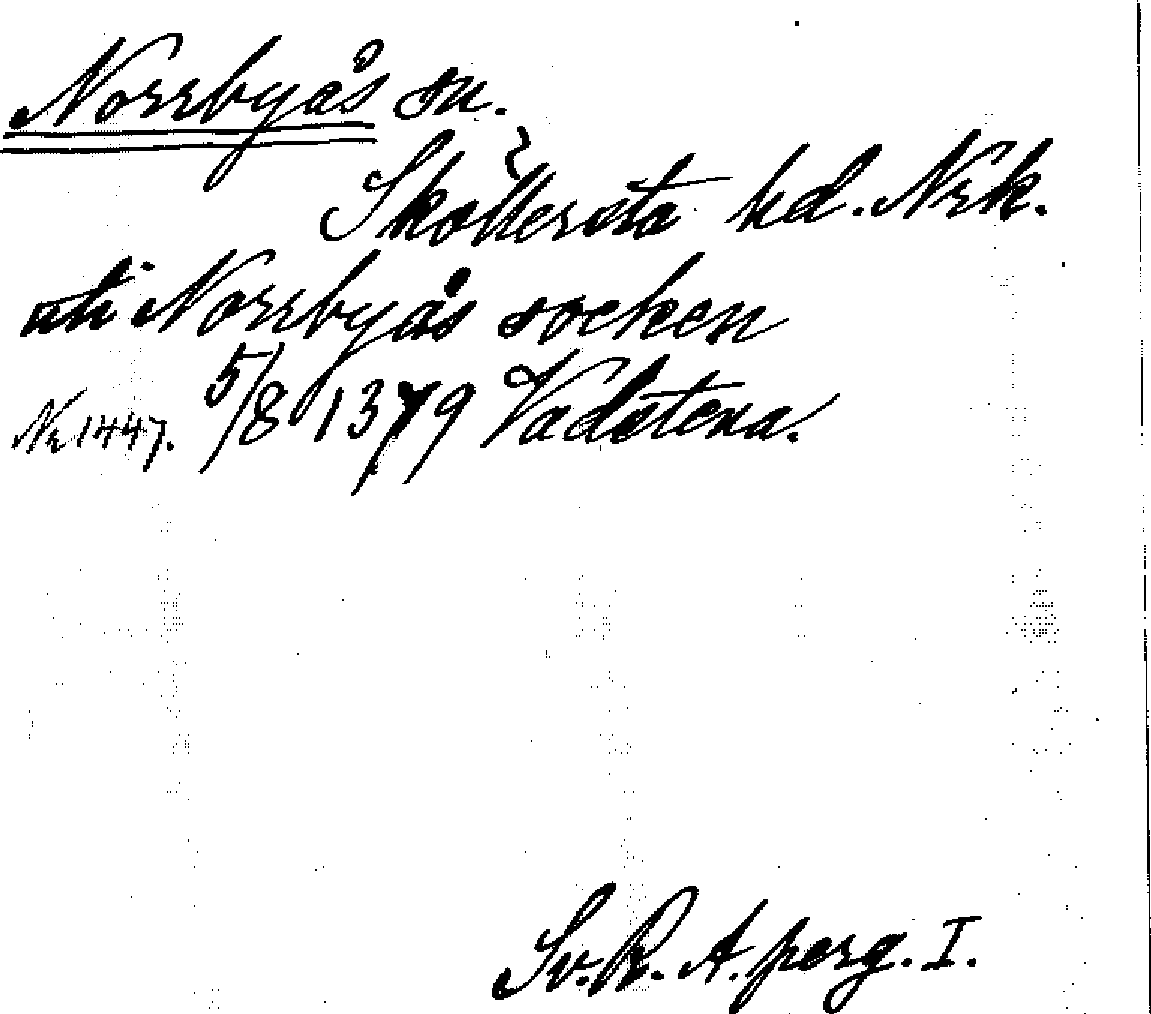 Norrbyås sn.
Sköllersta hd. Nrk.
uti Norrbyås socken
5/8 1379 Vadstena.
Nr 1447.
Sv. R. A. perg. I.